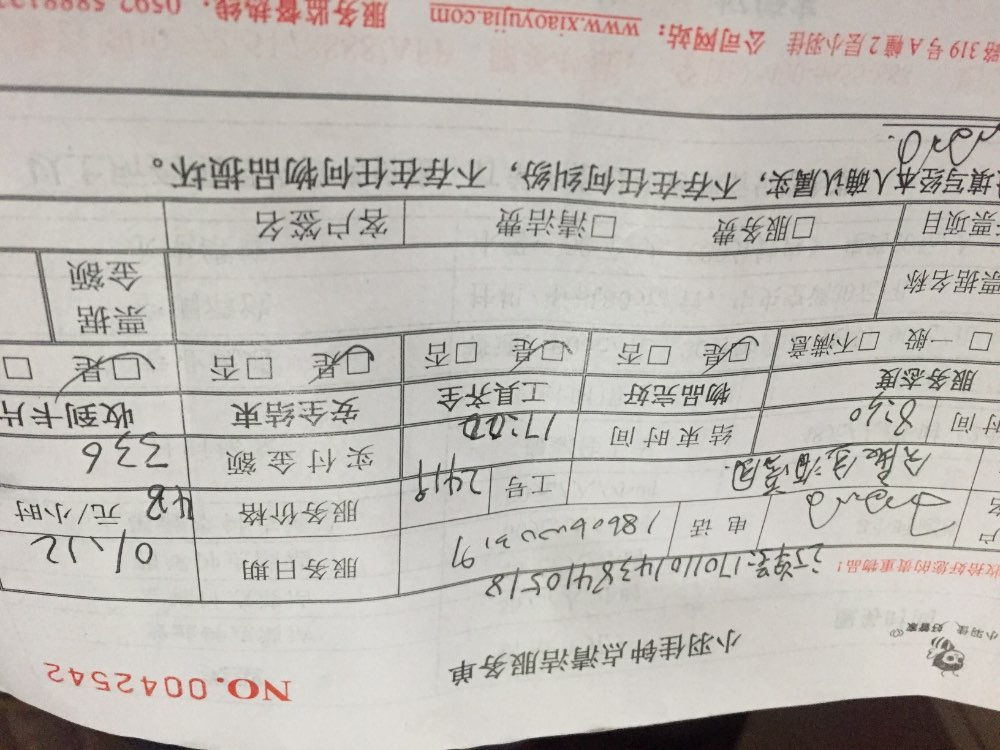 NO.0042542
小羽佳钟点清洁服务单
小羽佳 好管家
收拾好您的贵重物品！
17011014384110518
电话
服务日期 01.12
工号 2419
服务价格 48 元/小时
时间 8:30 结束时间 17:00 实付金额 336
服务态度 物品完好 工具齐全 安全结束 收到卡片
□ 一般 □不满意 □是 □否 □是 □否 □是 □否 □是 □
票据名称 票据金额
票项目 □服务费 □清洁费 客户签名
填写经本人确认属实，不存在任何纠纷，不存在任何物品损坏。
路 319 号 A 幢 2 层小羽佳 公司网站：www.xiaoyujia.com 服务监督热线：0592-